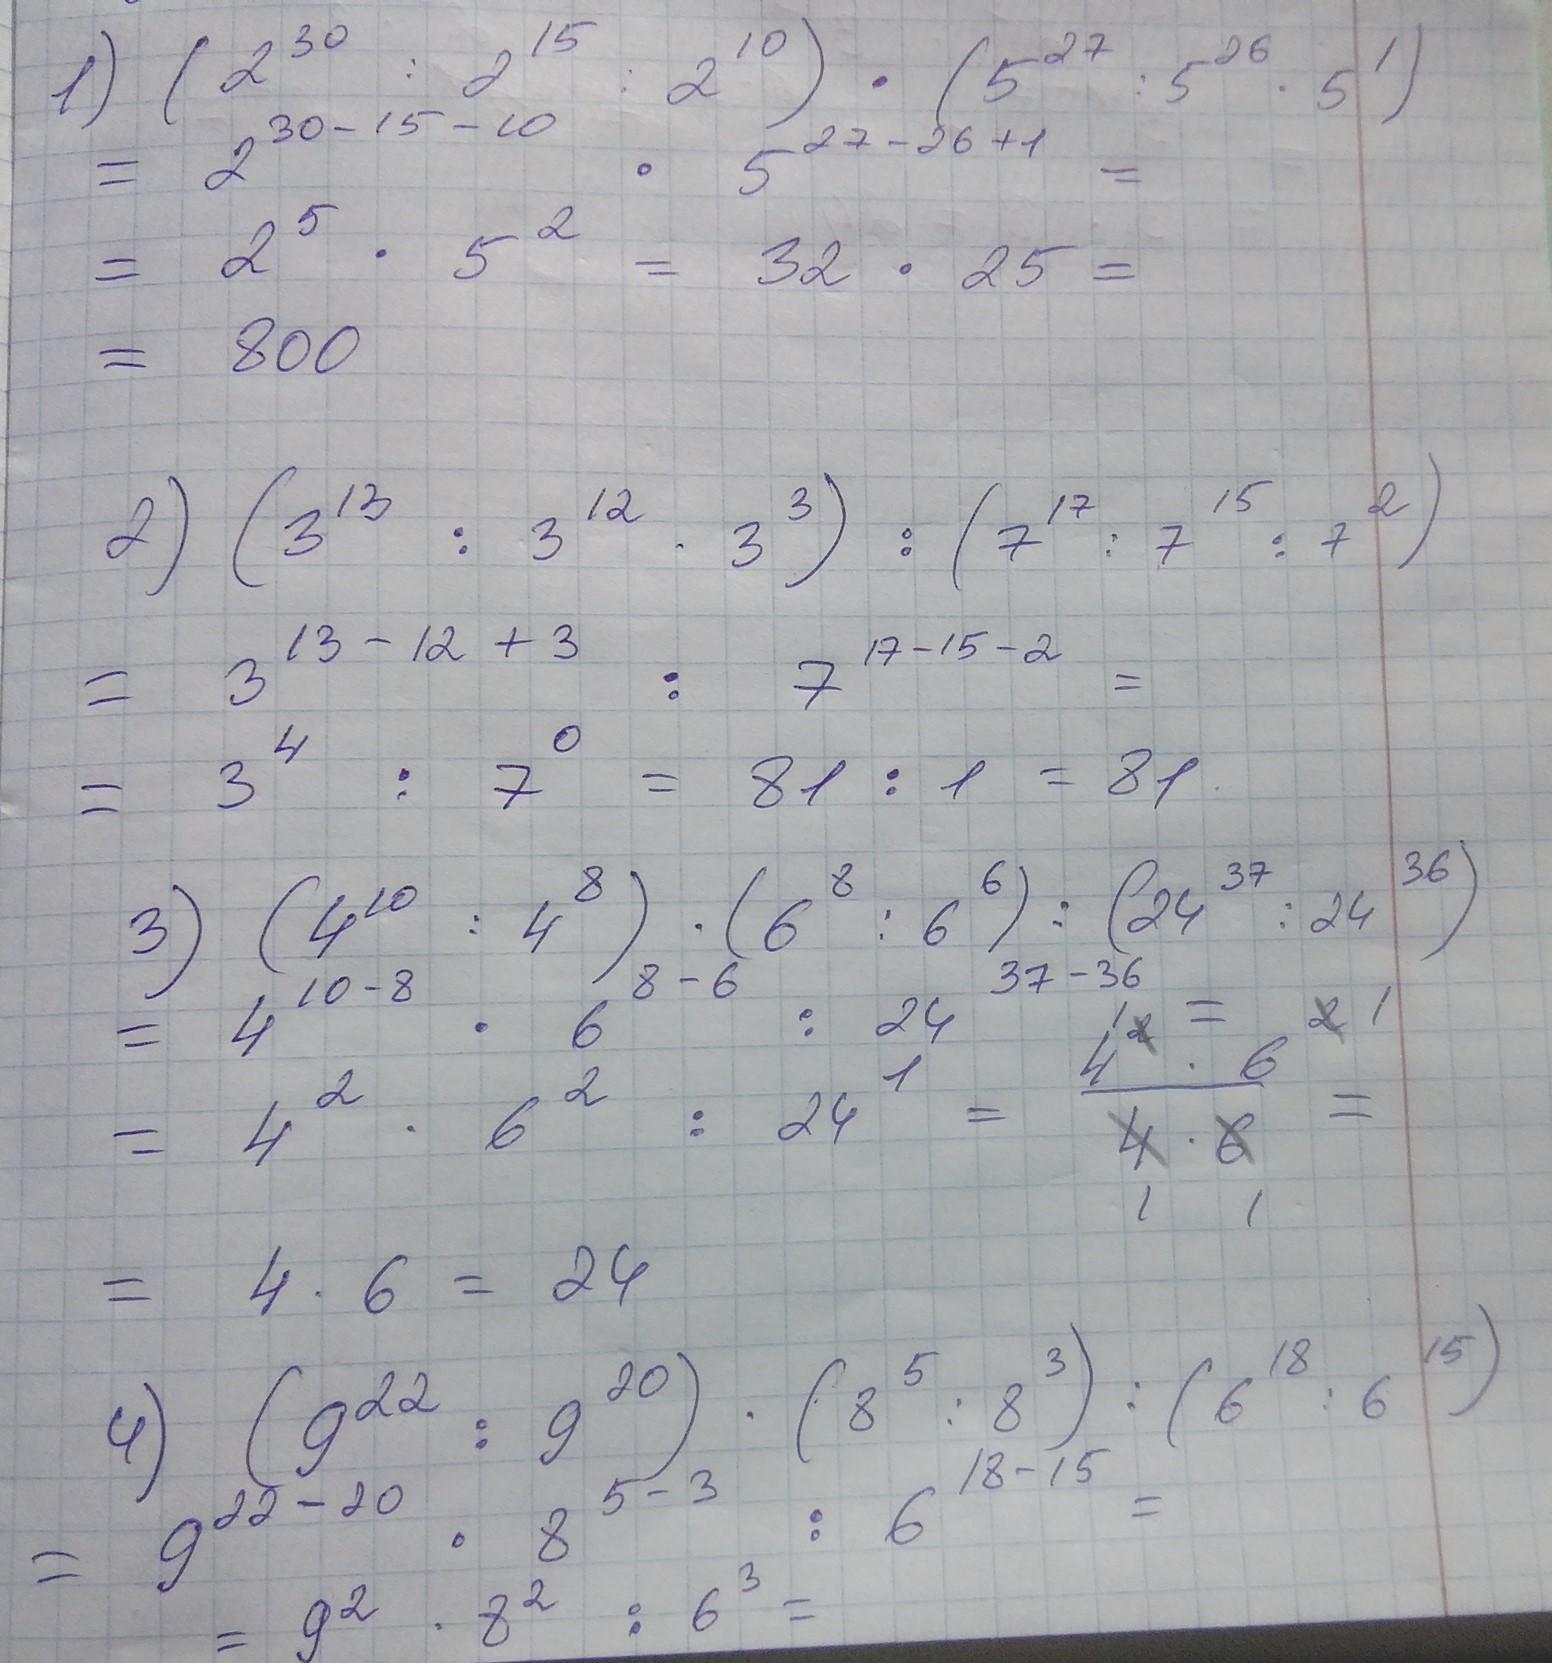 1) (2³⁰ : 2¹⁵ : 2¹⁰) · (5²⁷ : 5²⁶ · 5¹)
= 2³⁰⁻¹⁵⁻¹⁰ · 5²⁷⁻²⁶⁺¹ =
= 2⁵ · 5² = 32 · 25 =
= 800
2) (3¹³ : 3¹² · 3³) : (7¹⁷ : 7¹⁵ : 7²)
= 3¹³⁻¹²⁺³ : 7¹⁷⁻¹⁵⁻² =
= 3⁴ : 7⁰ = 81 : 1 = 81.
3) (4¹⁰ : 4⁸) · (6⁸ : 6⁶) : (24³⁷ : 24³⁶)
= 4¹⁰⁻⁸ · 6⁸⁻⁶ : 24³⁷⁻³⁶ =
1 2 1
= 4² · 6² : 24¹ = 4² · 6 / 4 · 6 =
1 1
= 4 · 6 = 24
4) (9²² : 9²⁰) · (8⁵ : 8³) : (6¹⁸ : 6¹⁵)
= 9²²⁻²⁰ · 8⁵⁻³ : 6¹⁸⁻¹⁵ =
= 9² · 8² : 6³ =